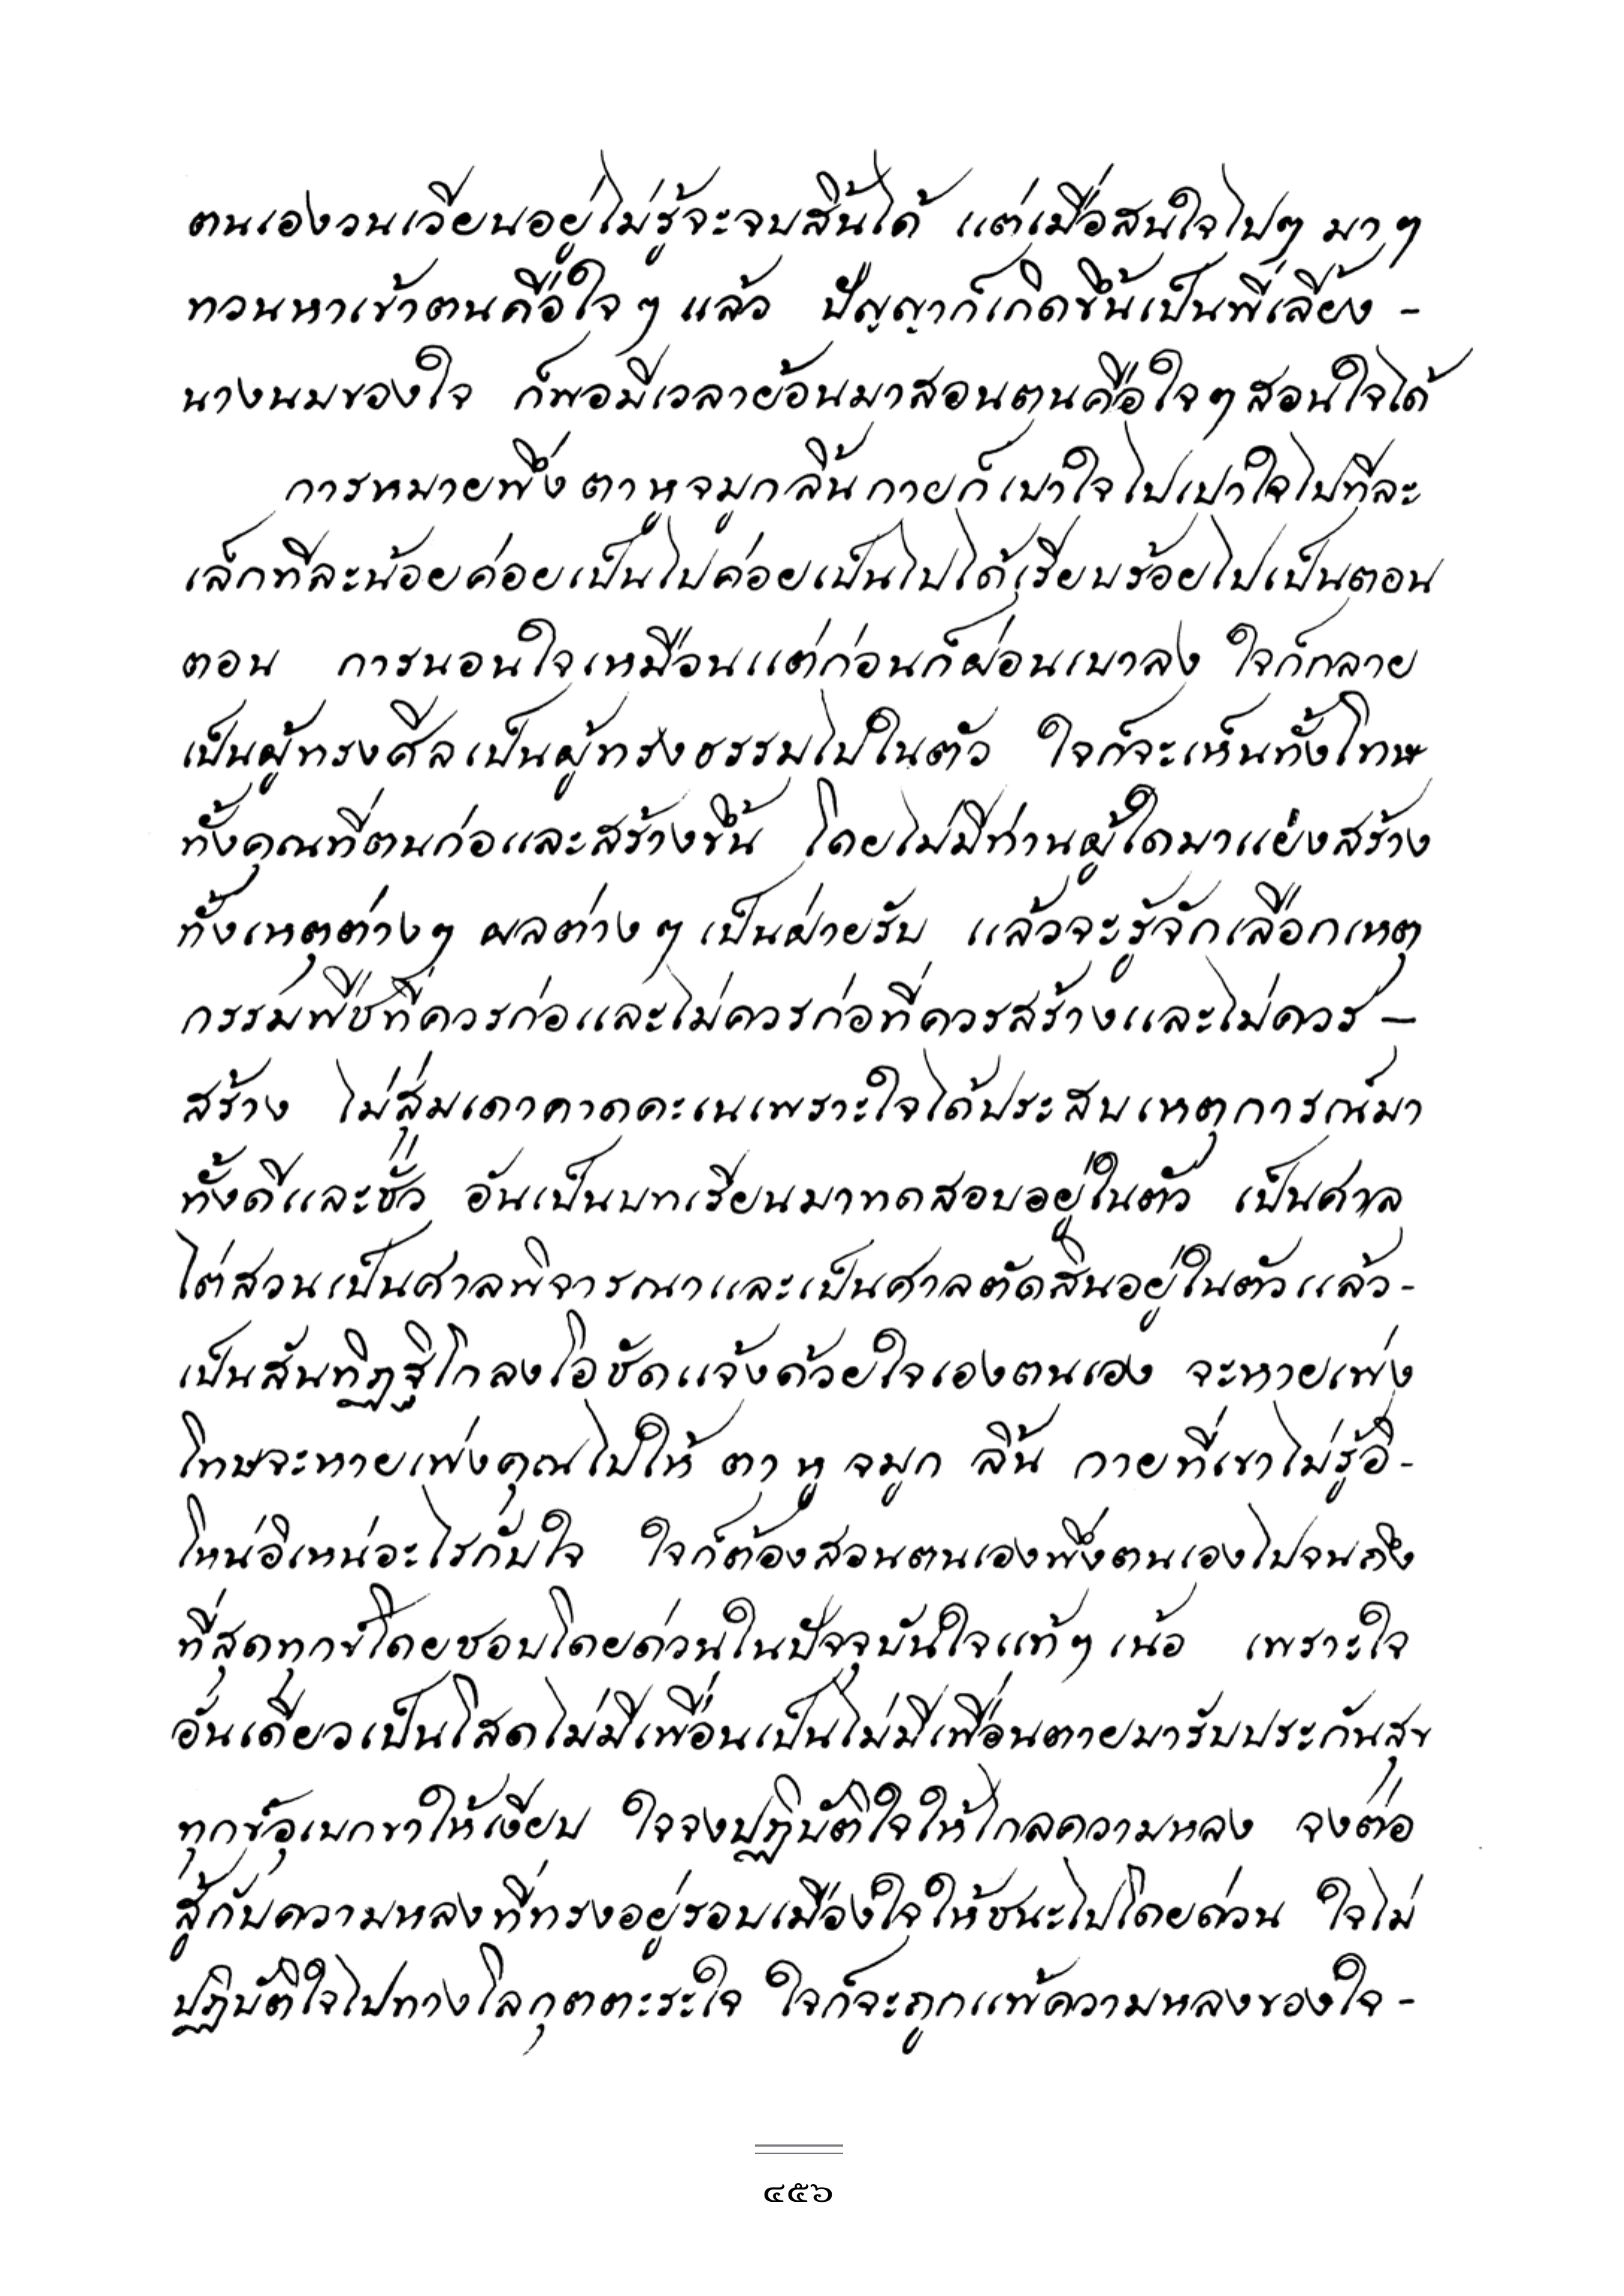 ตนเองวนเวียนอยู่ไม่รู้จะจบสิ้นได้ แต่เมื่อสนใจไปๆ มาๆ
ทวนหาเข้าตนคือใจๆ แล้ว ปัญญาก็เกิดขึ้นเป็นพี่เลี้ยง -
นางนมของใจ ก็พอมีเวลาย้อนมาสอนตนคือใจๆ สอนใจได้
การหมายพึ่ง ตา หู จมูก ลิ้น กายก็เบาใจไปเบาใจไปทีละ
เล็กทีละน้อยค่อยเป็นไปค่อยเป็นไปได้เรียบร้อยไปเป็นตอน
ตอน การนอนใจเหมือนแต่ก่อนก็ผ่อนเบาลง ใจก็กลาย
เป็นผู้ทรงศีลเป็นผู้ทรงธรรมไปในตัว ใจก็จะเห็นทั้งโทษ
ทั้งคุณที่ตนก่อและสร้างขึ้น โดยไม่มีท่านผู้ใดมาแย่งสร้าง
ทั้งเหตุต่างๆ ผลต่างๆ เป็นฝ่ายรับ แล้วจะรู้จักเลือกเหตุ
กรรมพืชที่ควรก่อและไม่ควรก่อที่ควรสร้างและไม่ควร -
สร้าง ไม่สุ่มเดาคาดคะเนเพราะใจได้ประสบเหตุการณ์มา
ทั้งดีและชั่ว อันเป็นบทเรียนมาทดสอบอยู่ในตัว เป็นศาล
ไต่สวนเป็นศาลพิจารณาและเป็นศาลตัดสินอยู่ในตัวแล้ว -
เป็นสันทิฏฐิโกลงโอชัดแจ้งด้วยใจเองตนเอง จะหายเพ่ง
โทษจะหายเพ่งคุณไปให้ ตา หู จมูก ลิ้น กายที่เขาไม่รู้อิ -
โหน่อิเหน่อะไรกับใจ ใจก็ต้องสอนตนเองพึ่งตนเองไปจนถึง
ที่สุดทุกข์โดยชอบโดยด่วนในปัจจุบันใจแท้ๆ เน้อ เพราะใจ
อันเดียวเป็นโสดไม่มีเพื่อนเป็นไม่มีเพื่อนตายมารับประกันสุข
ทุกข์อุเบกขาให้เงียบ ใจจงปฏิบัติใจให้ไกลความหลง จงต่อ
สู้กับความหลงที่ทรงอยู่รอบเมืองใจให้ชนะไปโดยด่วน ใจไม่
ปฏิบัติใจไปทางโลกุตตะระใจ ใจก็จะถูกแพ้ความหลงของใจ -
๔๕๖